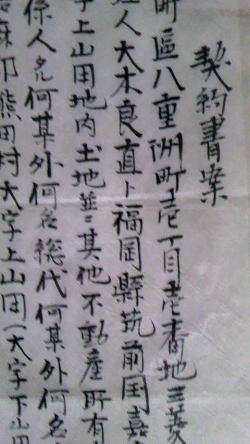 契約書案
町區八重洲町壱丁目壱番地三菱
人大木良直ト福岡縣筑前国嘉
字上山田地内土地並ニ其他不動産所有
係人名何某外何名総代何某外何名
郡熊田村大字上山田(大字下山田